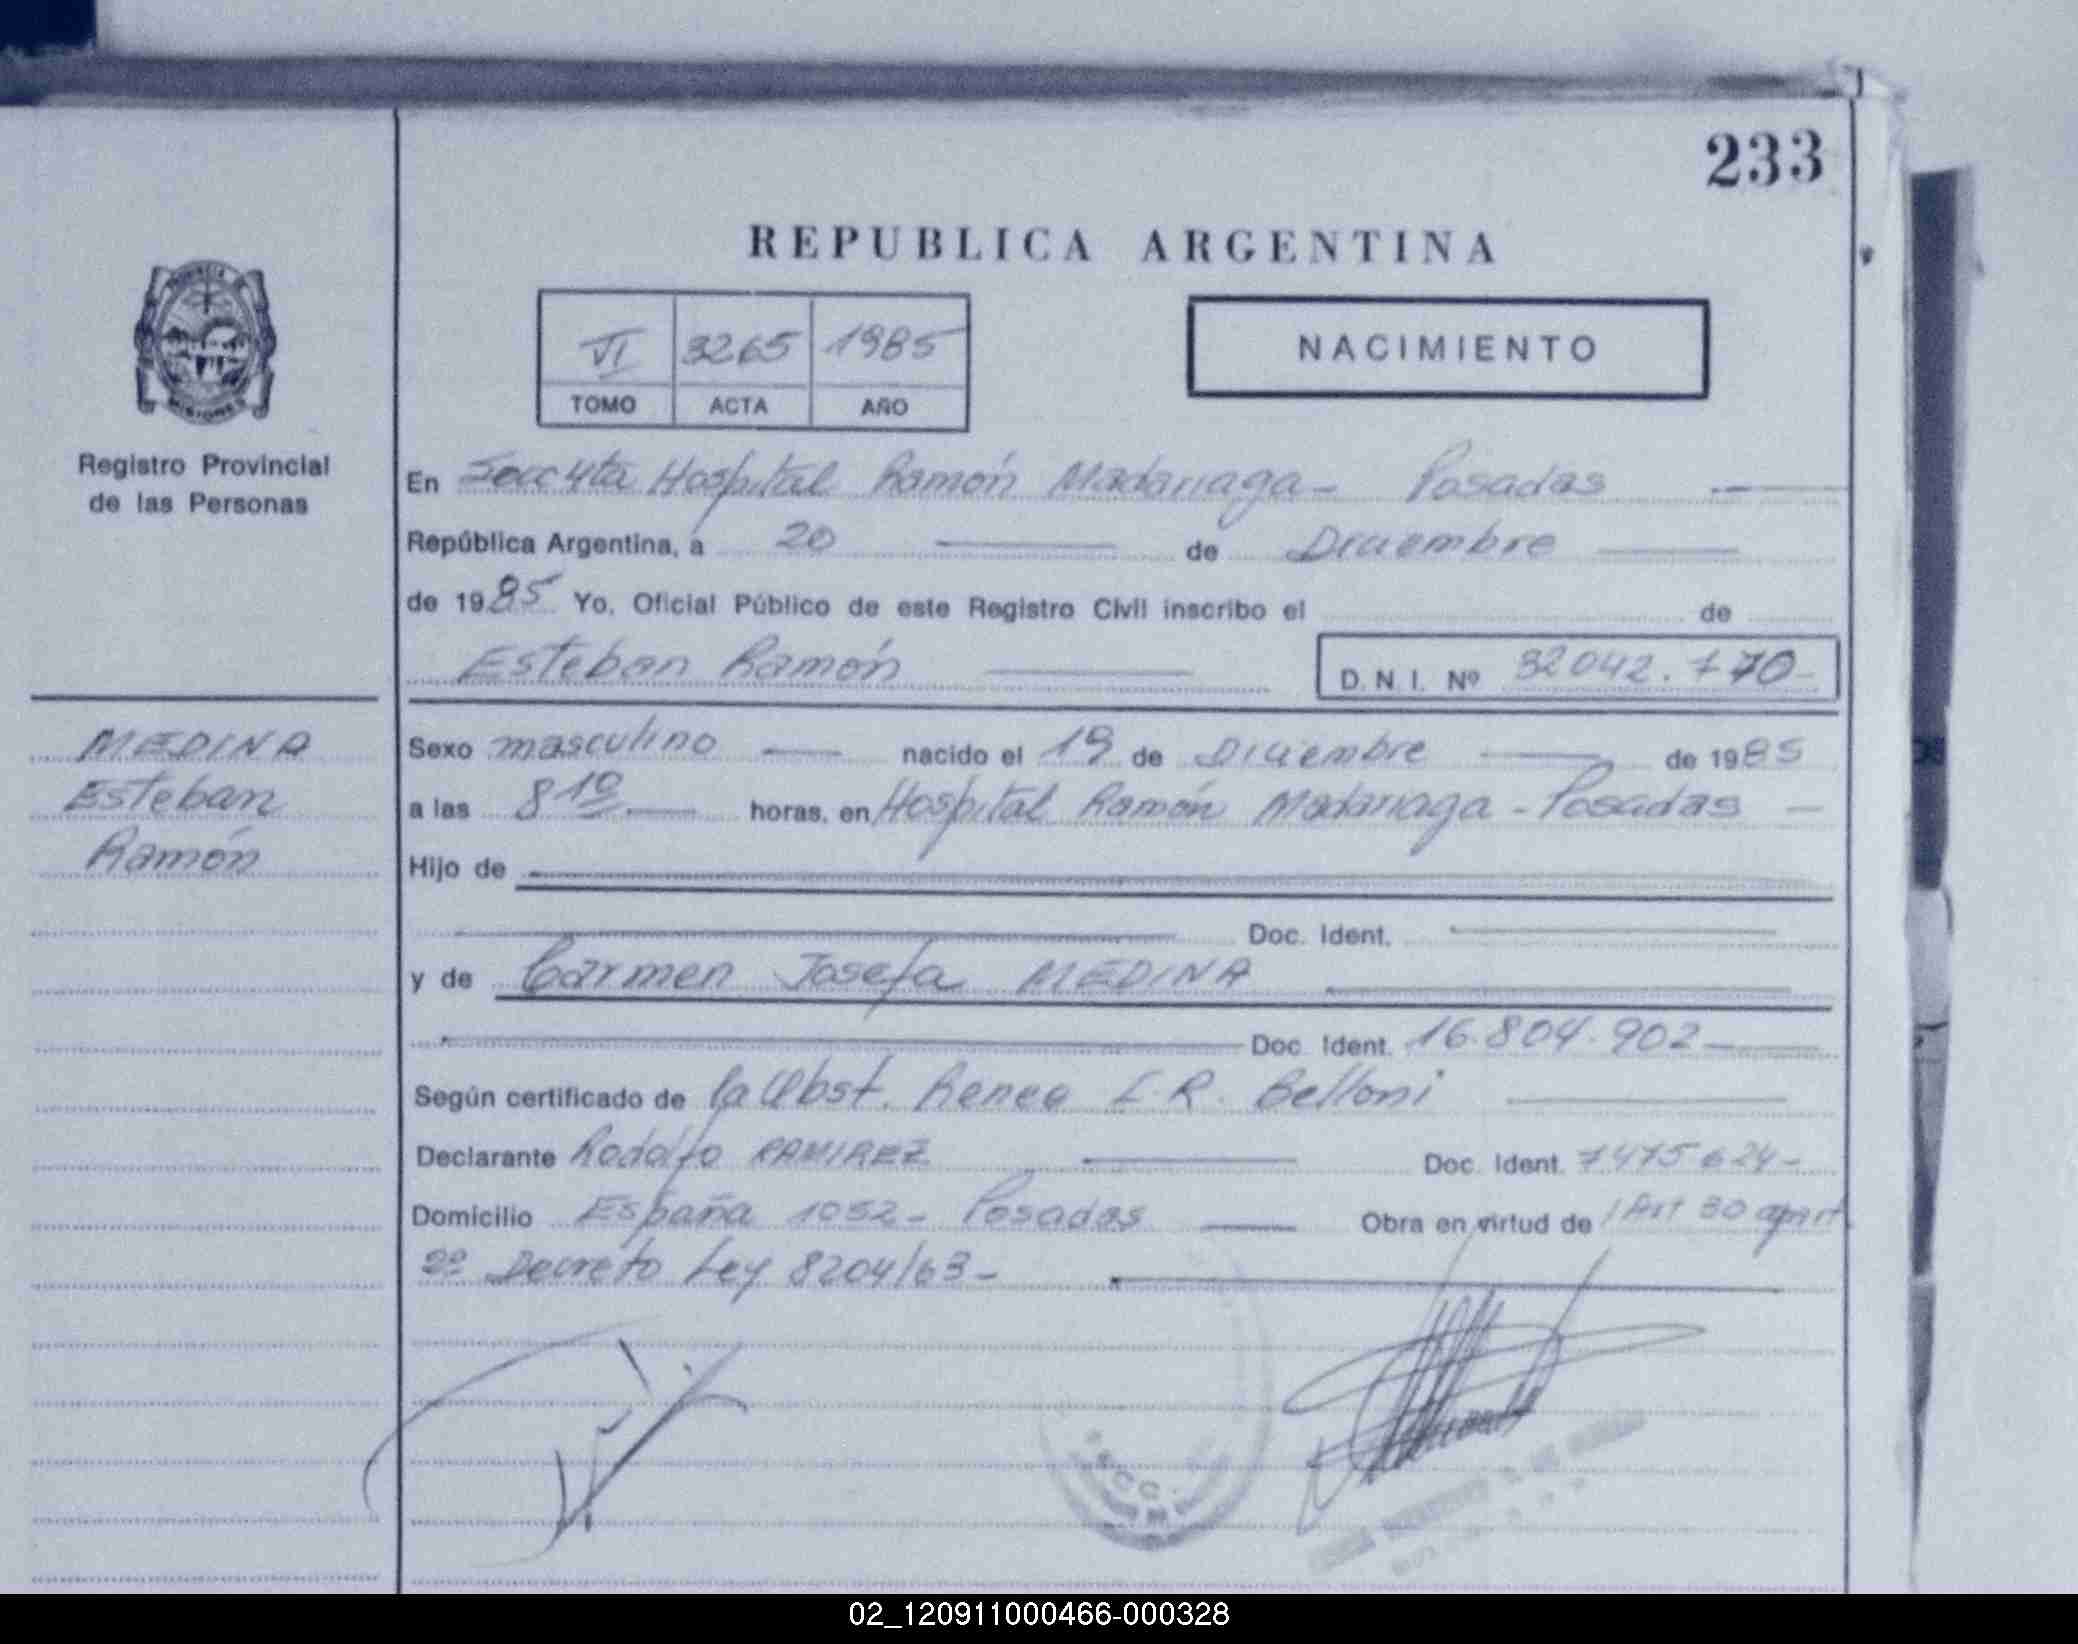 233
REPUBLICA ARGENTINA
VI 3265 1985
TOMO ACTA AÑO
NACIMIENTO
MISIONES
Registro Provincial
de las Personas
MEDINA
Esteban
Ramón
En Secc 4ta Hospital Ramón Madariaga - Posadas
República Argentina, a 20 de Diciembre
de 1985 Yo, Oficial Público de este Registro Civil inscribo el de
Esteban Ramón D. N. I. Nº 32042.170-
Sexo masculino nacido el 19 de Diciembre de 1985
a las 8 10 horas, en Hospital Ramón Madariaga - Posadas -
Hijo de
Doc. Ident.
y de Carmen Josefa MEDINA
Doc. Ident. 16.804.902
Según certificado de la Obst. Renee I. R. Belloni
Declarante Rodolfo RAMIREZ Doc. Ident. 7475624-
Domicilio España 1052 - Posadas Obra en virtud de Art 30 apart
2º Decreto Ley 8204/63 -
02_120911000466-000328